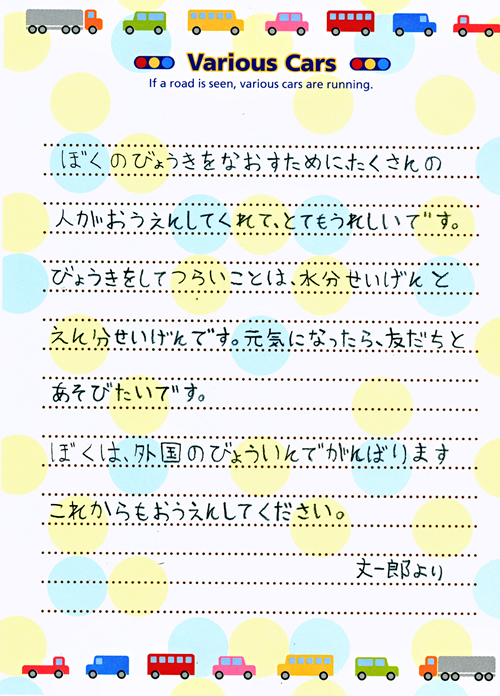 Various Cars
If a road is seen, various cars are running.
ぼくのびょうきをなおすためにたくさんの
人がおうえんしてくれて、とてもうれしいです。
びょうきをしてつらいことは、水分せいげんと
えん分せいげんです。元気になったら、友だちと
あそびたいです。
ぼくは、外国のびょういんでがんばります
これからもおうえんしてください。
丈一郎より